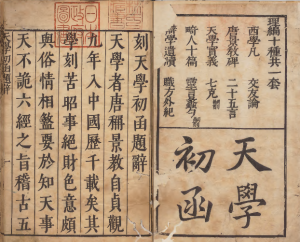 理編十種共一套
西學凡 交友論
唐景教碑 二十五言
天學實義 七克
畸人十篇 靈言蠡勺
辯學遺牘 職方外紀
天學
初函
刻天學初函題辭
天學者唐稱景教自貞觀
九年入中國歷千載矣其
學刻苦昭事絕財色意頗
與俗情相盭要於知天事
天不詭六經之旨稽古五
天學初函題辭 一